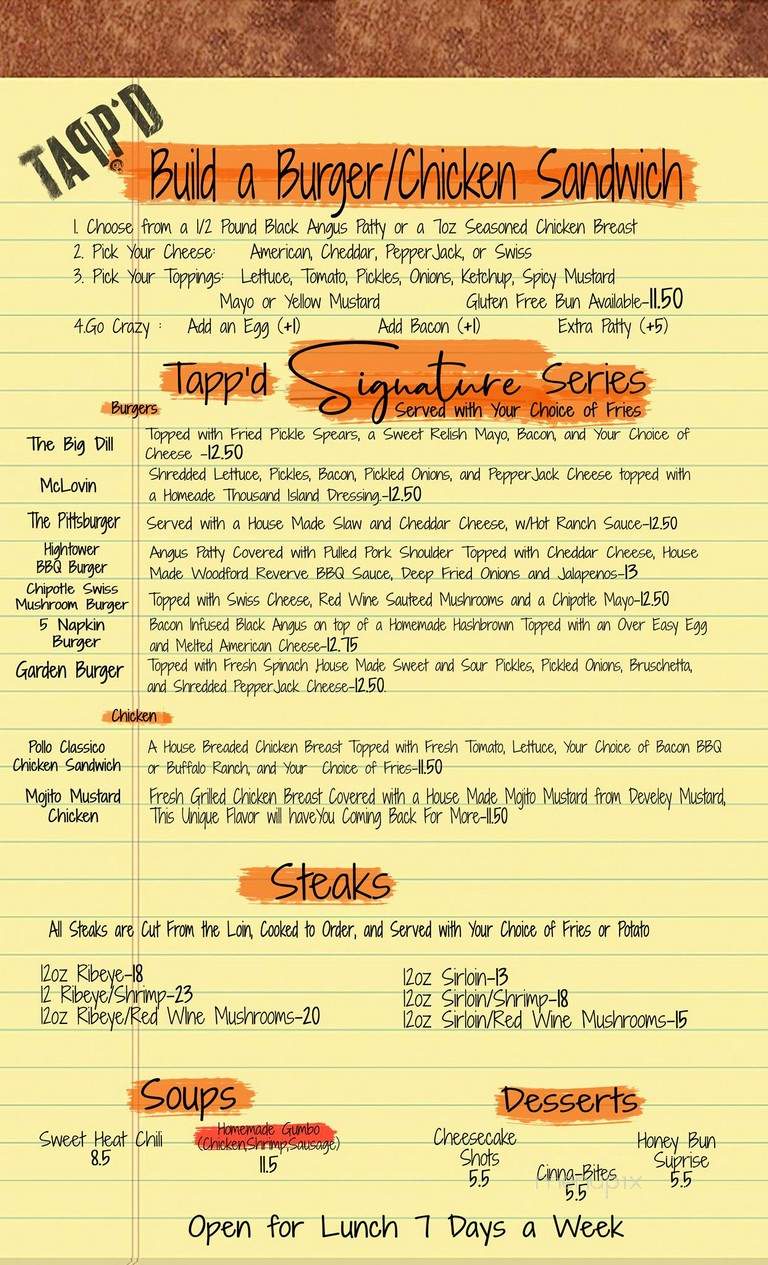 TAPP'D
Build a Burger/Chicken Sandwich
1. Choose from a 1/2 Pound Black Angus Patty or a 7oz Seasoned Chicken Breast
2. Pick Your Cheese: American, Cheddar, PepperJack, or Swiss
3. Pick Your Toppings: Lettuce, Tomato, Pickles, Onions, Ketchup, Spicy Mustard
Mayo or Yellow Mustard Gluten Free Bun Available-11.50
4.Go Crazy : Add an Egg (+1) Add Bacon (+1) Extra Patty (+5)
Tapp'd Signature Series
Burgers
Served with Your Choice of Fries
The Big Dill
Topped with Fried Pickle Spears, a Sweet Relish Mayo, Bacon, and Your Choice of
Cheese -12.50
McLovin
Shredded Lettuce, Pickles, Bacon, Pickled Onions, and PepperJack Cheese topped with
a Homeade Thousand Island Dressing.-12.50
The Pittsburger
Served with a House Made Slaw and Cheddar Cheese, w/Hot Ranch Sauce-12.50
Hightower
BBQ Burger
Angus Patty Covered with Pulled Pork Shoulder Topped with Cheddar Cheese, House
Made Woodford Reverve BBQ Sauce, Deep Fried Onions and Jalapenos-13
Chipotle Swiss
Mushroom Burger
Topped with Swiss Cheese, Red Wine Sauteed Mushrooms and a Chipotle Mayo-12.50
5 Napkin
Burger
Bacon Infused Black Angus on top of a Homemade Hashbrown Topped with an Over Easy Egg
and Melted American Cheese-12.75
Garden Burger
Topped with Fresh Spinach ,House Made Sweet and Sour Pickles, Pickled Onions, Bruschetta,
and Shredded PepperJack Cheese-12.50.
Chicken
Pollo Classico
Chicken Sandwich
A House Breaded Chicken Breast Topped with Fresh Tomato, Lettuce, Your Choice of Bacon BBQ
or Buffalo Ranch, and Your Choice of Fries-11.50
Mojito Mustard
Chicken
Fresh Grilled Chicken Breast Covered with a House Made Mojito Mustard from Develey Mustard,
This Unique Flavor will haveYou Coming Back For More-11.50
Steaks
All Steaks are Cut From the Loin, Cooked to Order, and Served with Your Choice of Fries or Potato
12oz Ribeye-18
12 Ribeye/Shrimp-23
12oz Ribeye/Red WIne Mushrooms-20
12oz Sirloin-13
12oz Sirloin/Shrimp-18
12oz Sirloin/Red Wine Mushrooms-15
Soups
Sweet Heat Chili
8.5
Homemade Gumbo
(Chicken,Shrimp,Sausage)
11.5
Desserts
Cheesecake
Shots
5.5
Cinna-Bites
5.5
Honey Bun
Suprise
5.5
Open for Lunch 7 Days a Week